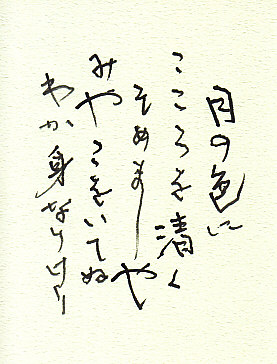 月の色に
こころを清く
そめましや
みやこをいてぬ
わか身なりせは